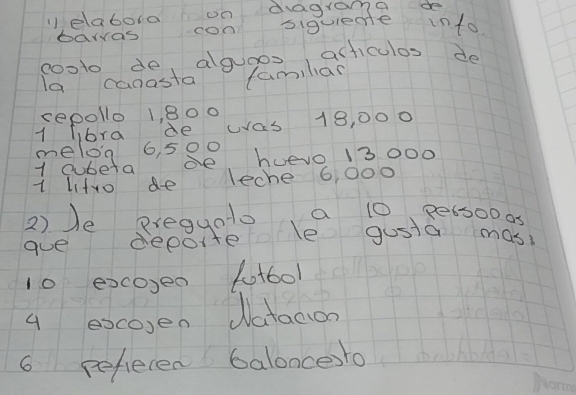 1) elabora un diagrama de
barras con siguiente info.
costo de algunos articulos de
la canasta familiar
repollo 1,800
1 libra de uvas 18,000
melón 6,500
1 cubeta de huevo 13.000
1 litro de leche 6,000
2) Se pregunto a 10 personas
que deporte le gusta mas.
10 escogen futbol
4 escogen Natacion
6 pefieren baloncesto
Norma